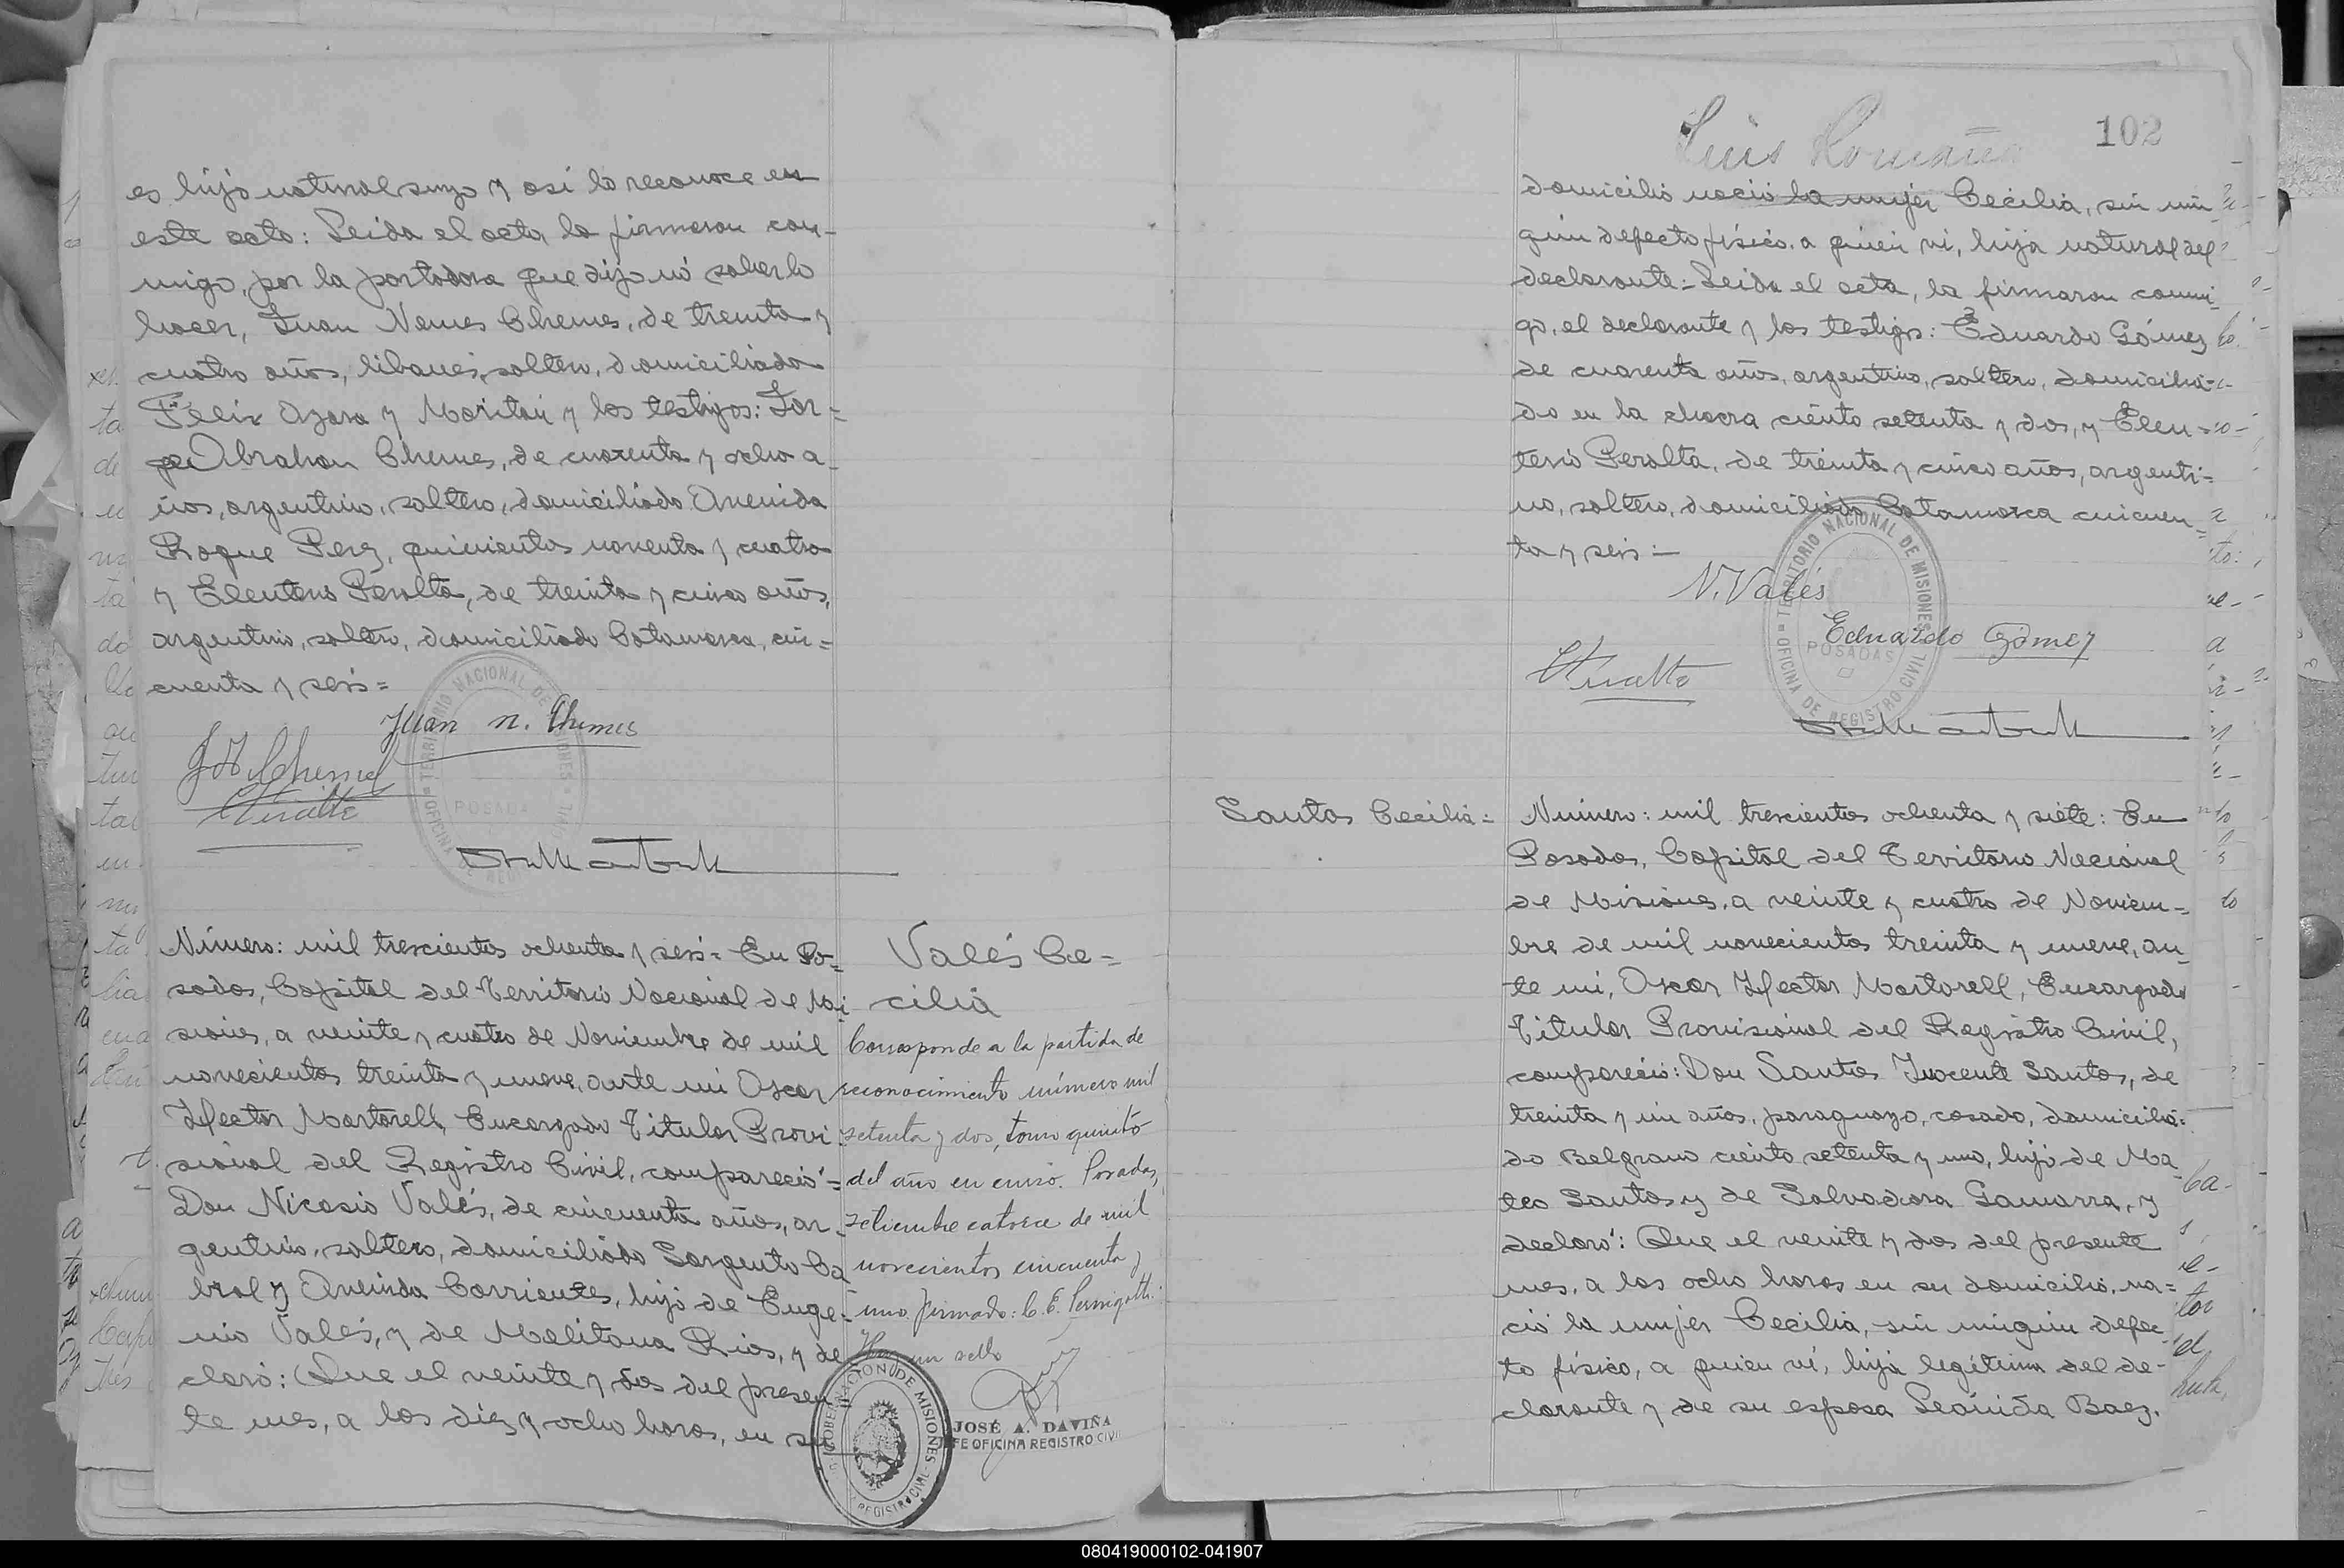 es hijo natural suyo y así lo reconoce en
este acto: Leida el acta la firmaron con-
migo, por la portadora que dijo nó saberlo
hacer, Juan Nemes Chemes, de treinta y
cuatro años, libanes, soltero, domiciliado
Felix Azara y Moritán y los testigos: Jor-
ge Abrahan Chemes, de cuarenta y ocho a-
ños, argentino, soltero, domiciliado Avenida
Roque Perez, quinientos noventa y cuatro
y Eleuterio Peralta, de treinta y cinco años,
argentino, soltero, domiciliado Catamarca, cin=
cuenta y seis=
Juan N. Chemes
TERRITORIO NACIONAL DE MISIONES
OFICINA DE REGISTRO CIVIL
POSADAS
Número: mil trescientos ochenta y seis= En Po=
sadas, Capital del Territorio Nacional de Mi
siones, a veinte y cuatro de Noviembre de mil
novecientos treinta y nueve, ante mi Oscar
Hector Martorell, Encargado Titular Provi-
sional del Registro Civil, compareció=
Don Nicasio Valés, de cincuenta años, ar-
gentino, soltero, domiciliado Sargento Ca
bral y Avenida Corrientes, hijo de Euge-
nio Valés, y de Melitona Rios, y de
claró: Que el veinte y dos del presen
te mes, a las diez y ocho horas, en su
Valés Ce=
cilia
Corresponde a la partida de
reconocimiento número mil
setenta y dos, tomo quinto
del año en curso. Posadas,
setiembre catorce de mil
novecientos cincuenta y
uno. firmado: C. E. Pernigotti.
Hay un sello
GOBERNACION DE MISIONES
REGISTRO CIVIL
JOSÉ A. DAVIÑA
JEFE OFICINA REGISTRO CIVIL
Luis Romaña
102
domicilio nació la mujer Cecilia, sin nin
gún defecto físico, a quien ví, hija natural del
declarante:= Leida el acta, la firmaron conmi-
go, el declarante y los testigos: Eduardo Gómez
de cuarenta años, argentino, soltero, domicilia-
do en la chacra ciento setenta y dos, y Eleu-
terio Peralta, de treinta y cinco años, argenti=
no, soltero, domiciliado Catamarca cincuen-
ta y seis:=
N. Valés
Eduardo Gómez
TERRITORIO NACIONAL DE MISIONES
OFICINA DE REGISTRO CIVIL
POSADAS
Santos Cecilia=
Número: mil trescientos ochenta y siete: En
Posadas, Capital del Territorio Nacional
de Misiones, a veinte y cuatro de Noviem-
bre de mil novecientos treinta y nueve, an-
te mi, Oscar Hector Martorell, Encargado
Titular Provisional del Registro Civil,
compareció: Don Santos Inocente Santos, de
treinta y un años, paraguayo, casado, domicilia=
do Belgrano ciento setenta y uno, hijo de Ma
teo Santos y de Salvadora Gamarra, y
declaró: Que el veinte y dos del presente
mes, a las ocho horas en su domicilio, na=
ció la mujer Cecilia, sin ningún defec-
to físico, a quien ví, hija legítima del de-
clarante y de su esposa Leónida Baez.
080419000102-041907